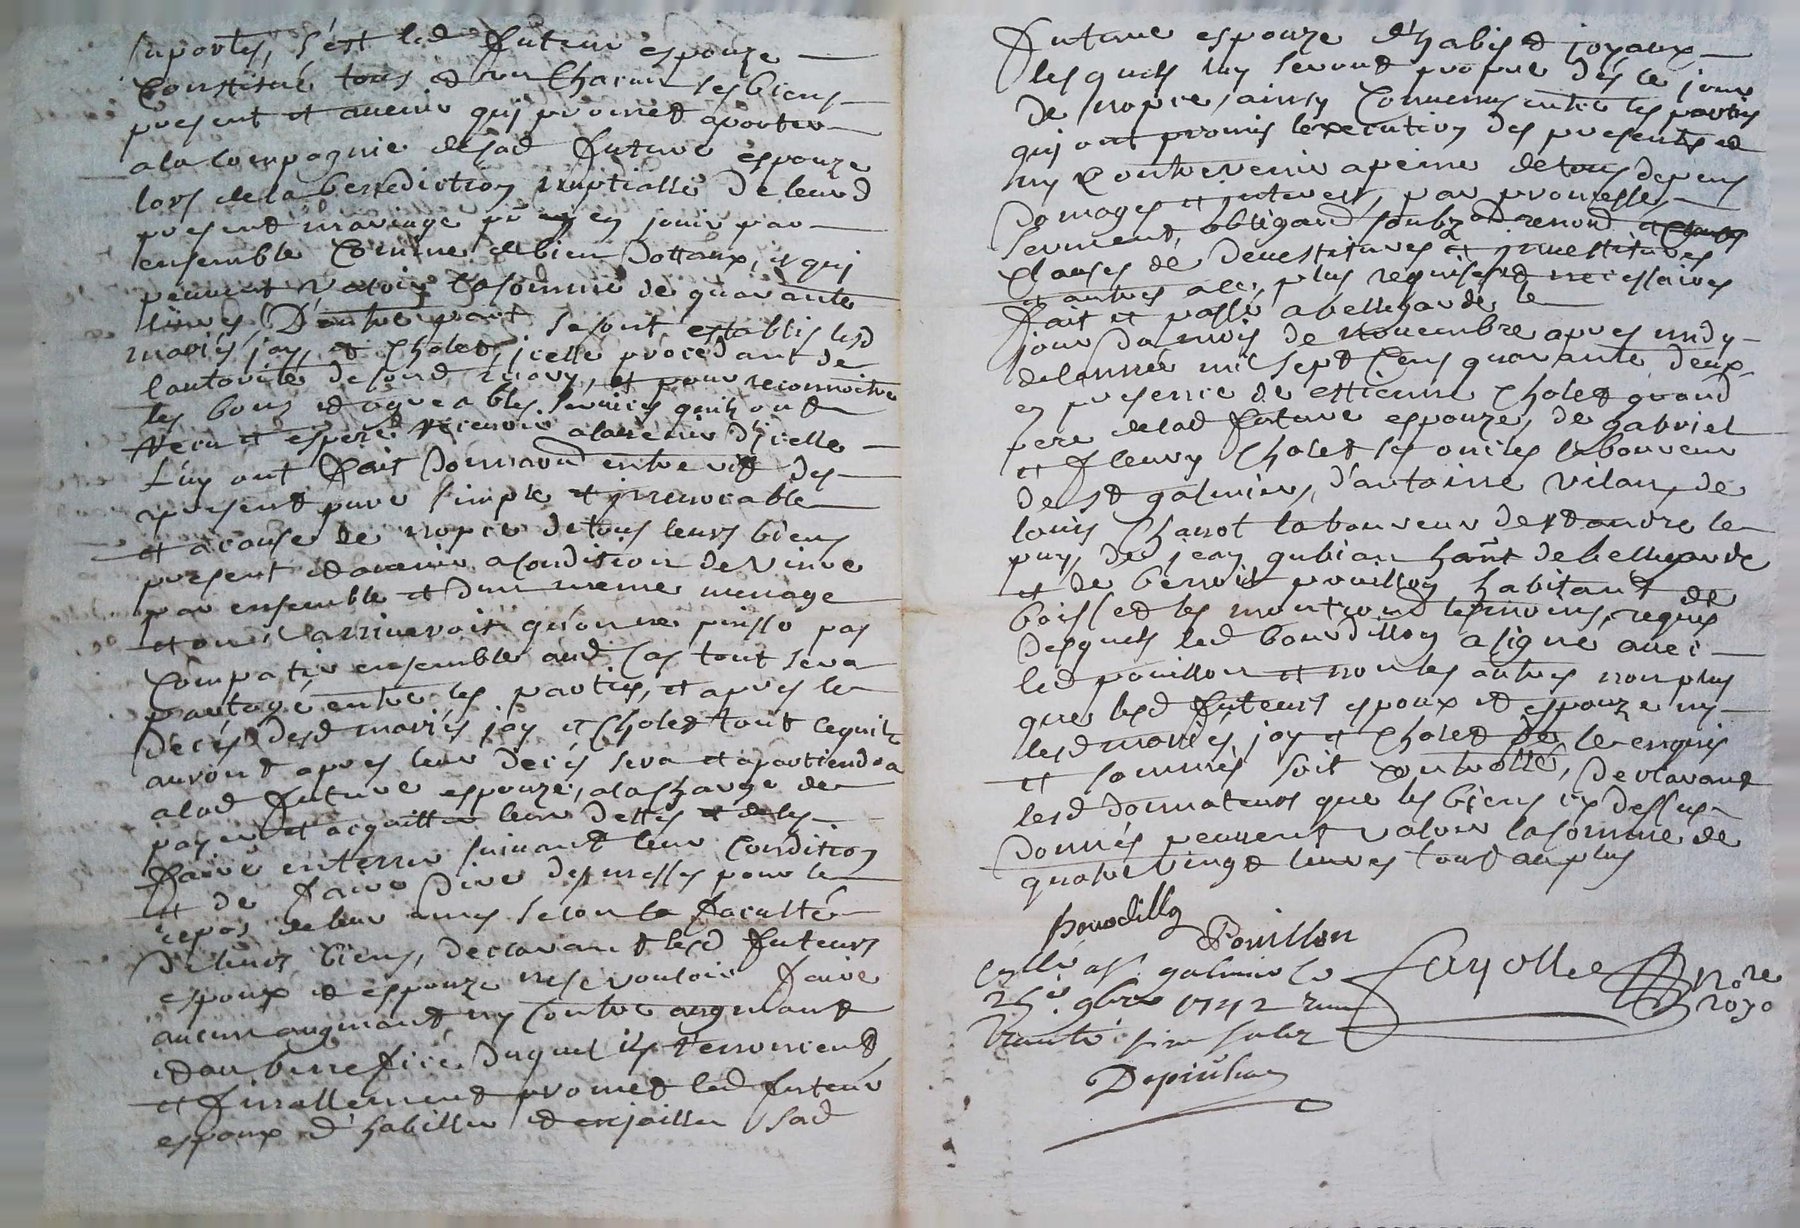 suportes, s'est led futeur espouze
Constitué tous et un Chacun ses biens
present et avenir quj promet aporter
a la Compagnie de sad future espouze
lors de la benediction nuptialle de leurd
present mariage pr en jouir par
ensemble Comme de bien dottaux, et quj
peuvent valoir la somme de quarante
livres, D'autre part se sont establis lesd
mariés joy et Cholet, jcelle procedant de
l'autorité de sond mary, et pour reconnoitre
les bons et agreables services quils ont
recu et espere recevoir a lavenir d'jcelle
Luy ont fait donnaon entre vifs des
present pure simple et jrrevocable
et a cause de nopce de tous leurs biens
present et avenir a Condition de vivre
par ensemble et d'un meme menage
et ou il arriveroit qu'on ne puisse pas
Compatir ensemble aud Cas tout sera
partagé entre les parties, et apres le
décés desd mariés joy et Cholet tout cequils
auront apres leur decés sera et apartiendra
a lad future espouze, a la charge de
payer et acquitter leur dettes et de les
faire enterrer suivant leur Condition
et de faire dire des messes pour le
repos de leur ames selon la faculté
de leurs biens, declarant lesd futeurs
espoux et espouze ne se vouloir faire
aucun augmant, ny Contre augmant
et au benefice duquel ils renoncent,
et finallement promet led futeur
espoux d'habiller et enjoailler sad
future espouze d'habis et joyaux
lesquels luy seront propre dés le jour
de nopce, ainsy Convenus entre les parties
quj ont promis l'execution des presentes et
ny Contrevenir a peine de tous depens
domages et interest, par promesse,
serment, obligaon soubz aon renonon et
Clauses de devestitures et jnvestitures
et autres a ce, plus requises et necessaires
fait et passé a bellegarde le
jour du mois de novembre apres midy
de lannée mil sept Cens quarante deux
en presence de ettienne Cholet grand
pere de lad future espouze, de gabriel
et fleury Cholet ses oncles laboureur
de st galmier, d'antoine vilary de
louis Charrot laboureur de st andre le
puy, de jean gubian habnt de bellegarde
et de benoit pouillon habitant de
boisset les montrond temoins, requis
desquels led bourdillon a signé avec
led pouillon et non les autres non plus
que lesd futeurs espoux et espouze ny
lesd mariés joy et Cholet de le enquis
et sommés, soit controllé, declarant
lesd donnateurs que les biens cy dessus
donnés peuvent valoir la somme de
quatre vingt livres tout au plus
Bourdillon
Pouillon
Cllé a st galmier le
25e 9bre 1742 recu
trante six solz
Fayolle Nore
royo
Depiuhan